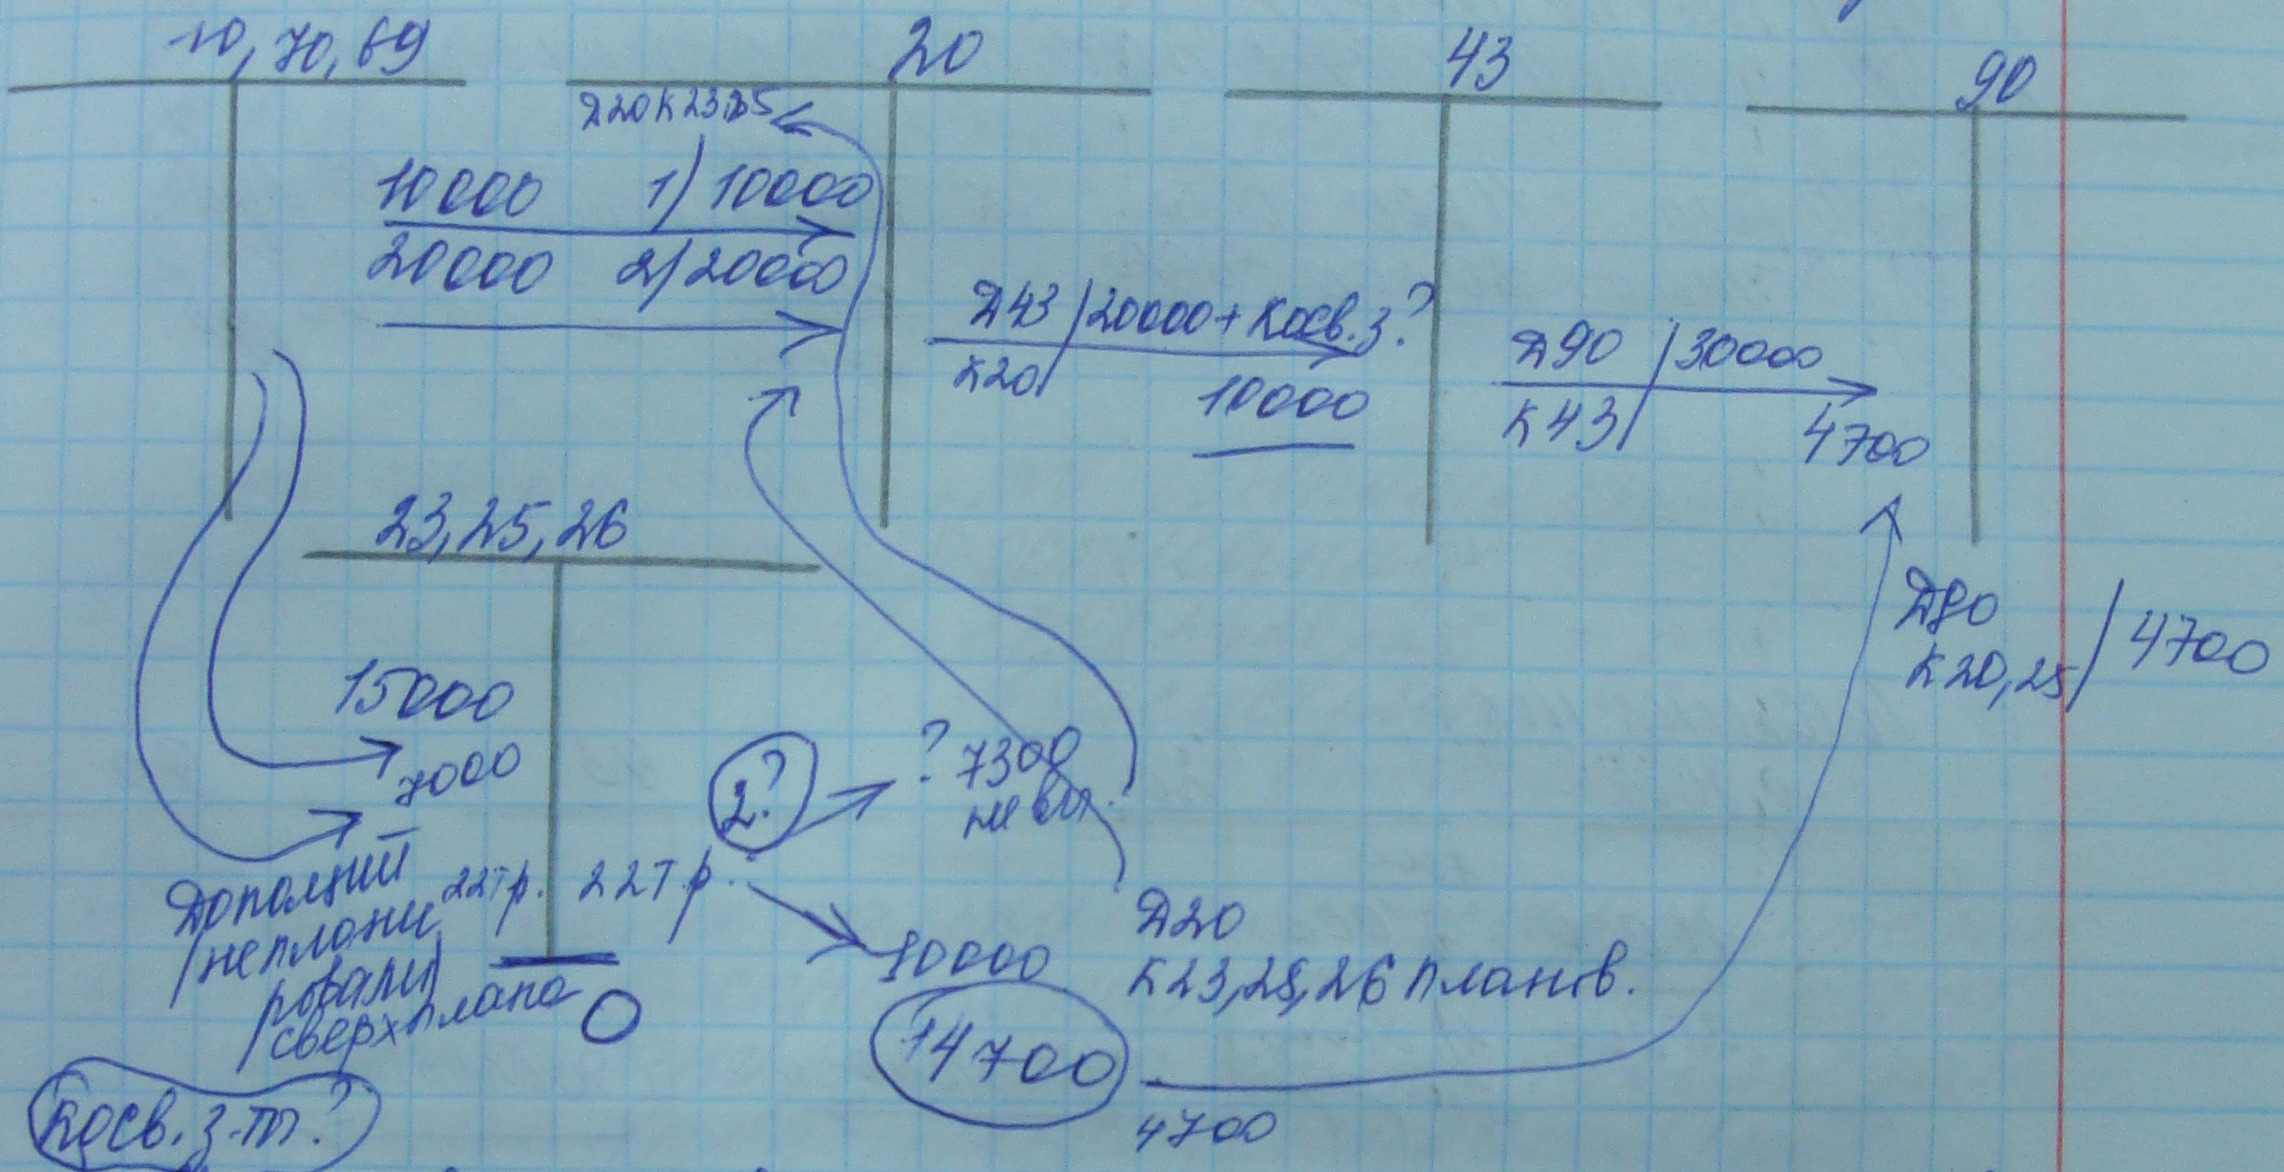 10, 70, 69
20
43
90
Д20 К23.25
10000 1) 10000
20000 2) 20000
Д43 / 20000 + Косв. з?
К20
10000
Д90 / 30000
К43
4700
23, 25, 26
Д90 / 4700
К20, 25
15000
7000
2?
? 7300
22тр. 22тр.
10000
Д20
К23, 25, 26 планов.
/неплани
ровали/
/сверхплана
0
14700
4700
Косв. з-ты?